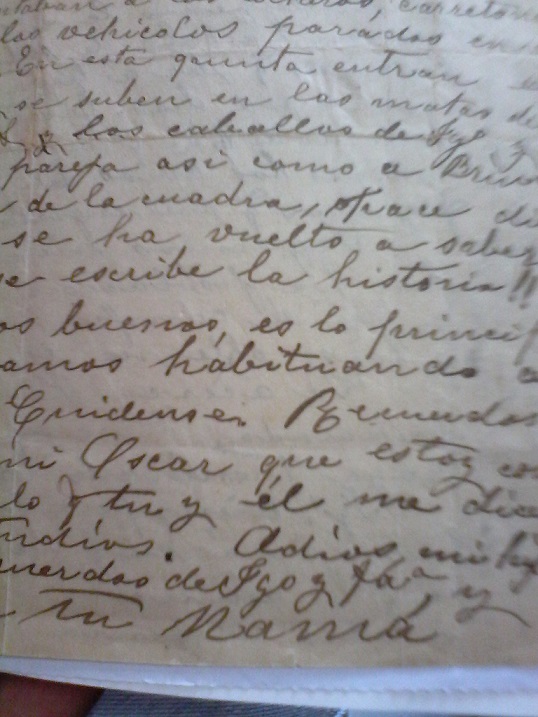 los vehicolos parados en
En esta quinta entran
se suben en las matas de
los caballos de Ygo y
pareja asi como a
de la cuadra, Hace
se ha vuelto a saber
se escribe la historia!!
os buenos, es lo princip
amos habituando a
Cuidense. Recuerdos
mi Oscar que estoy co
lo y tu y él me dice
udios. Adios mi hij
uerdos de Ygo y y
Tu Mamá